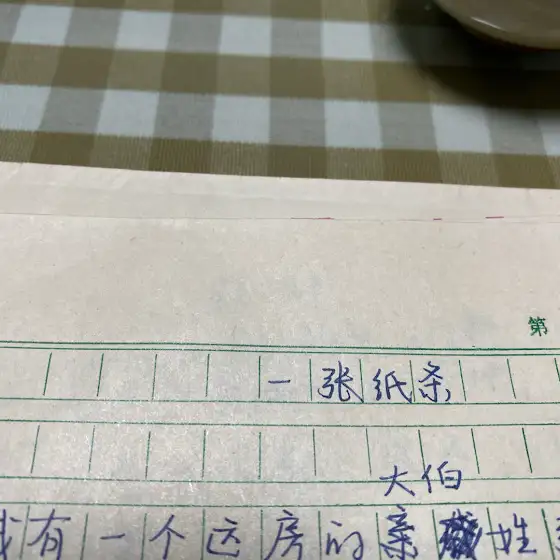 第
一张纸条
大伯
我有一个这房的亲姓